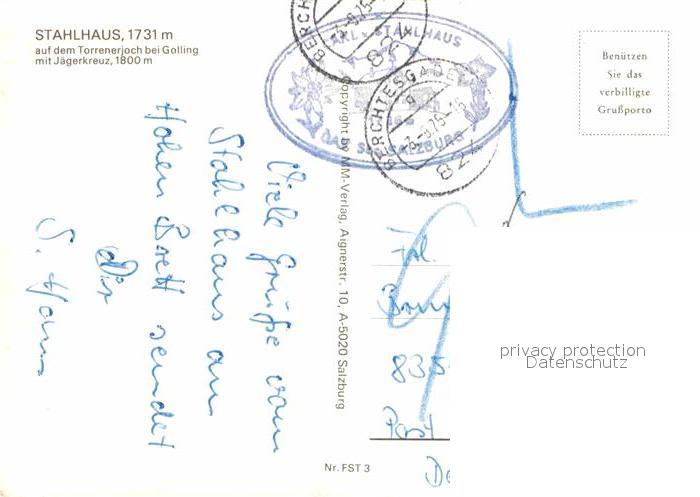 STAHLHAUS, 1731 m
auf dem Torrenerjoch bei Golling
mit Jägerkreuz, 1800 m
Benützen
Sie das
verbilligte
Grußporto
STAHLHAUS
SALZBURG
BERCH
824
BERCHTESGADEN
824
Copyright by MM-Verlag, Aignerstr. 10, A-5020 Salzburg
Viele Grüße vom
Stahlhaus am
Hohen Brett sendet
Dir
Frl.
835
Post
Nr. FST 3
privacy protection
Datenschutz